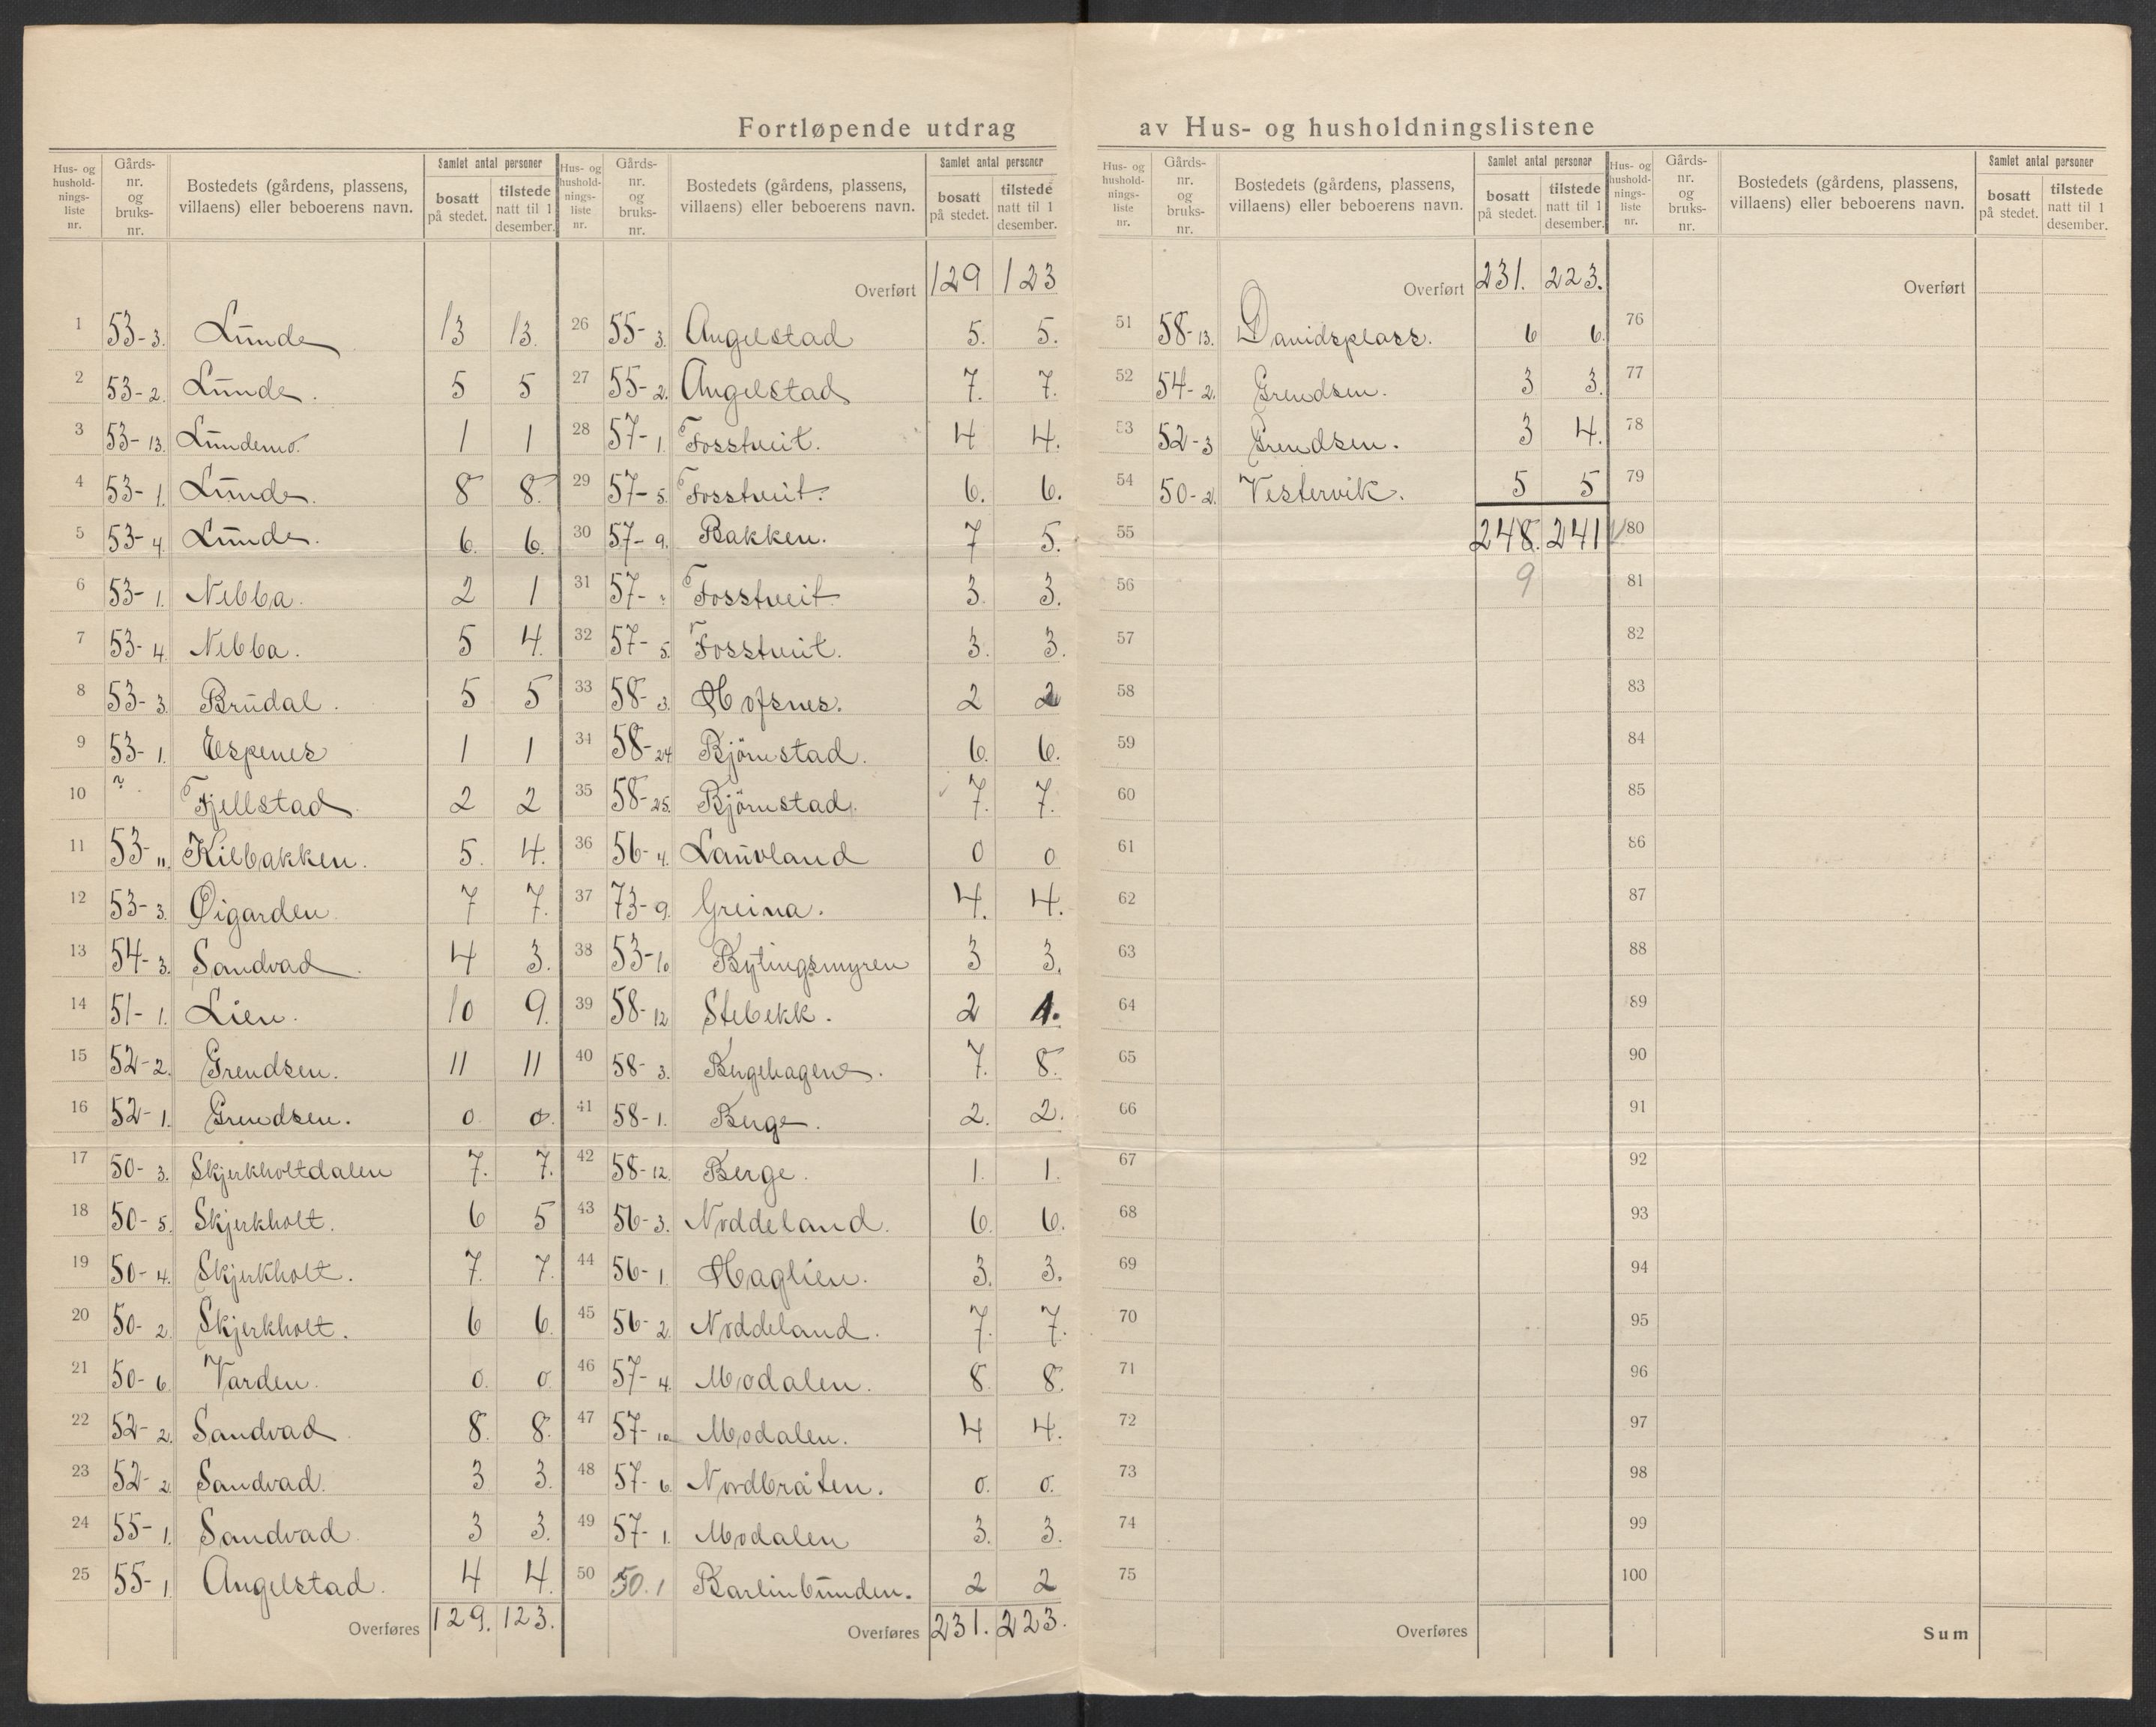 Fortløpende utdrag av Hus- og husholdningslistene
Hus- og hushold-nings-liste nr. | Gårds-nr. og bruks-nr. | Bostedets (gårdens, plassens, villaens) eller beboerens navn. | Samlet antal personer | bosatt på stedet. | tilstede natt til 1 desember.
1 53-3. Lunde 13 13.
2 53-2. Lunde. 5 5
3 53-13. Lundemo. 1 1
4 53-1. Lunde. 8 8.
5 53-4. Lunde. 6. 6.
6 53-1. Nebba. 2 1
7 53-4. Nebba. 5 4.
8 53-3. Brudal. 5 5
9 53-1. Espenes 1 1
10 ? Fjellstad 2 2
11 53-11. Kilebakken. 5. 4.
12 53-3. Øigarden. 7 7.
13 54-3. Sandvad. 4 3.
14 51-1. Lien. 10 9.
15 52-2. Grendsen. 11 11
16 52-1. Grendsen. 0. 0.
17 50-3. Skjerkholtdalen 7. 7.
18 50-5. Skjerkholt. 6 5
19 50-4. Skjerkholt. 7. 7.
20 50-2. Skjerkholt. 6 6.
21 50-6 Varden. 0. 0.
22 52-2. Sandvad. 8. 8.
23 52-2. Sandvad. 3 3.
24 55-1. Sandvad 3 3.
25 55-1. Angelstad. 4 4.
Overføres 129. 123.
Hus- og hushold-nings-liste nr. | Gårds-nr. og bruks-nr. | Bostedets (gårdens, plassens, villaens) eller beboerens navn. | Samlet antal personer | bosatt på stedet. | tilstede natt til 1 desember.
Overført 129 123
26 55-3. Angelstad 5. 5.
27 55-2. Angelstad 7. 7.
28 57-1. Fosstveit. 4 4.
29 57-5. Fosstveit. 6. 6.
30 57-9. Bakken. 7 5.
31 57-? Fosstveit 3. 3.
32 57-5. Fosstveit. 3. 3.
33 58-3. Hofsnes. 2 2
34 58-24 Björnstad. 6. 6.
35 58-25. Björnstad. 7. 7.
36 56-4. Lauvland 0 0
37 73-9. Greina. 4. 4.
38 53-10 Bytingsmyren 3 3.
39 58-12 Stebekk. 2 1.
40 58-3. Bergehagen. 7. 8.
41 58-1. Berge. 2. 2.
42 58-12. Berge. 1. 1.
43 56-3. Noddeland. 6. 6.
44 56-1. Haglien. 3. 3.
45 56-2. Noddeland. 7. 7.
46 57-4. Modalen. 8. 8.
47 57-10 Modalen. 4 4.
48 57-6. Nordbråten. 0. 0.
49 57-1. Modalen 3. 3.
50 50.1 Barlinbunden. 2 2
Overføres 231. 223.
Hus- og hushold-nings-liste nr. | Gårds-nr. og bruks-nr. | Bostedets (gårdens, plassens, villaens) eller beboerens navn. | Samlet antal personer | bosatt på stedet. | tilstede natt til 1 desember.
Overført 231. 223.
51 58-13. Davidsplass. 6 6.
52 54-2. Grendsen. 3 3.
53 52-3 Grendsen. 3 4.
54 50-2. Vestervik. 5 5
55 248. 241
56 9
57
58
59
60
61
62
63
64
65
66
67
68
69
70
71
72
73
74
75
Overføres
Hus- og hushold-nings-liste nr. | Gårds-nr. og bruks-nr. | Bostedets (gårdens, plassens, villaens) eller beboerens navn. | Samlet antal personer | bosatt på stedet. | tilstede natt til 1 desember.
Overført
76
77
78
79
80
81
82
83
84
85
86
87
88
89
90
91
92
93
94
95
96
97
98
99
100
Sum